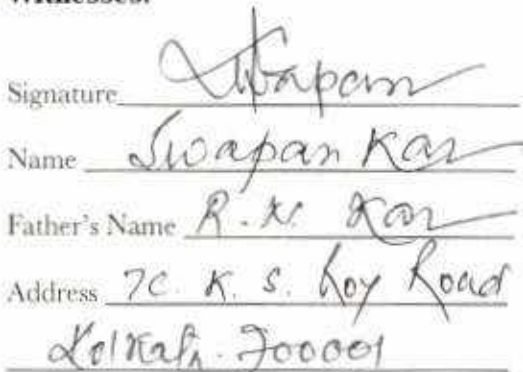 Witnesses:
Signature Swapan
Name Swapan Kar
Father's Name R. N. Kar
Address 7C. K. S. Roy Road
Kolkata. 700001